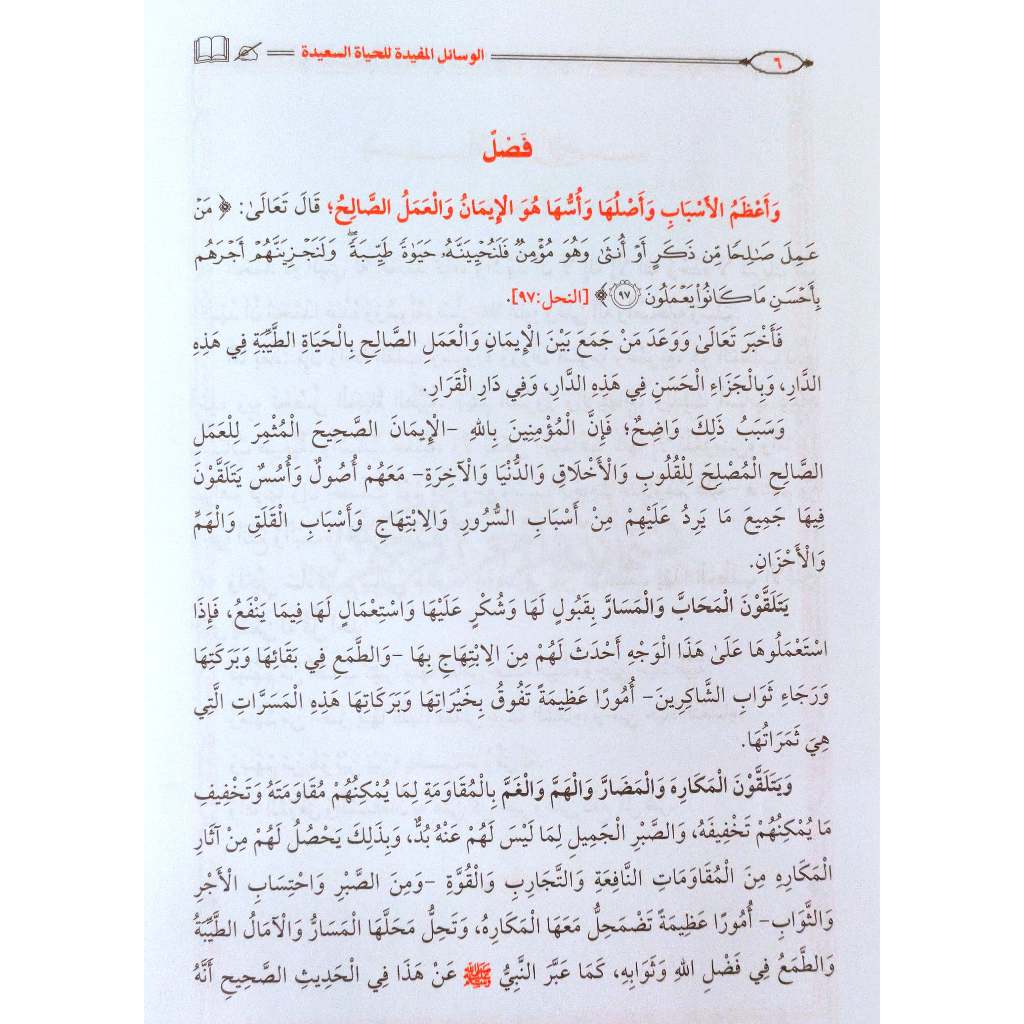 ٦ الوسائل المفيدة للحياة السعيدة
فَصْلٌ
وَأَعْظَمُ الأَسْبَابِ وَأَصْلُهَا وَأُسُّهَا هُوَ الإِيمَانُ وَالْعَمَلُ الصَّالِحُ؛ قَالَ تَعَالَىٰ: ﴿ مَنْ
عَمِلَ صَـٰلِحًا مِّن ذَكَرٍ أَوْ أُنثَىٰ وَهُوَ مُؤْمِنٌ فَلَنُحْيِيَنَّهُۥ حَيَوٰةً طَيِّبَةً ۖ وَلَنَجْزِيَنَّهُمْ أَجْرَهُم
بِأَحْسَنِ مَا كَانُوا۟ يَعْمَلُونَ ٩٧ ﴾ [النحل:٩٧].
فَأَخْبَرَ تَعَالَىٰ وَوَعَدَ مَنْ جَمَعَ بَيْنَ الْإِيمَانِ وَالْعَمَلِ الصَّالِحِ بِالْحَيَاةِ الطَّيِّبَةِ فِي هَذِهِ
الدَّارِ، وَبِالْجَزَاءِ الْحَسَنِ فِي هَذِهِ الدَّارِ، وَفِي دَارِ الْقَرَارِ.
وَسَبَبُ ذَلِكَ وَاضِحٌ؛ فَإِنَّ الْمُؤْمِنِينَ بِاللهِ –الْإِيمَانَ الصَّحِيحَ الْمُثْمِرَ لِلْعَمَلِ
الصَّالِحِ الْمُصْلِحَ لِلْقُلُوبِ وَالْأَخْلَاقِ وَالدُّنْيَا وَالْآخِرَةِ– مَعَهُمْ أُصُولٌ وَأُسُسٌ يَتَلَقَّوْنَ
فِيهَا جَمِيعَ مَا يَرِدُ عَلَيْهِمْ مِنْ أَسْبَابِ السُّرُورِ وَالِابْتِهَاجِ وَأَسْبَابِ الْقَلَقِ وَالْهَمِّ
وَالْأَحْزَانِ.
يَتَلَقَّوْنَ الْمَحَابَّ وَالْمَسَارَّ بِقَبُولٍ لَهَا وَشُكْرٍ عَلَيْهَا وَاسْتِعْمَالٍ لَهَا فِيمَا يَنْفَعُ، فَإِذَا
اسْتَعْمَلُوهَا عَلَىٰ هَذَا الْوَجْهِ أَحْدَثَ لَهُمْ مِنَ الِابْتِهَاجِ بِهَا –وَالطَّمَعِ فِي بَقَائِهَا وَبَرَكَتِهَا
وَرَجَاءِ ثَوَابِ الشَّاكِرِينَ– أُمُورًا عَظِيمَةً تَفُوقُ بِخَيْرَاتِهَا وَبَرَكَاتِهَا هَذِهِ الْمَسَرَّاتِ الَّتِي
هِيَ ثَمَرَاتُهَا.
وَيَتَلَقَّوْنَ الْمَكَارِهَ وَالْمَضَارَّ وَالْهَمَّ وَالْغَمَّ بِالْمُقَاوَمَةِ لِمَا يُمْكِنُهُمْ مُقَاوَمَتَهُ وَتَخْفِيفِ
مَا يُمْكِنُهُمْ تَخْفِيفَهُ، وَالصَّبْرِ الْجَمِيلِ لِمَا لَيْسَ لَهُمْ عَنْهُ بُدٌّ، وَبِذَلِكَ يَحْصُلُ لَهُمْ مِنْ آثَارِ
الْمَكَارِهِ مِنَ الْمُقَاوَمَاتِ النَّافِعَةِ وَالتَّجَارِبِ وَالْقُوَّةِ –وَمِنَ الصَّبْرِ وَاحْتِسَابِ الْأَجْرِ
وَالثَّوَابِ– أُمُورًا عَظِيمَةً تَضْمَحِلُّ مَعَهَا الْمَكَارِهُ، وَتَحِلُّ مَحَلَّهَا الْمَسَارُّ وَالْآمَالُ الطَّيِّبَةُ
وَالطَّمَعُ فِي فَضْلِ اللهِ وَثَوَابِهِ، كَمَا عَبَّرَ النَّبِيُّ ﷺ عَنْ هَذَا فِي الْحَدِيثِ الصَّحِيحِ أَنَّهُ